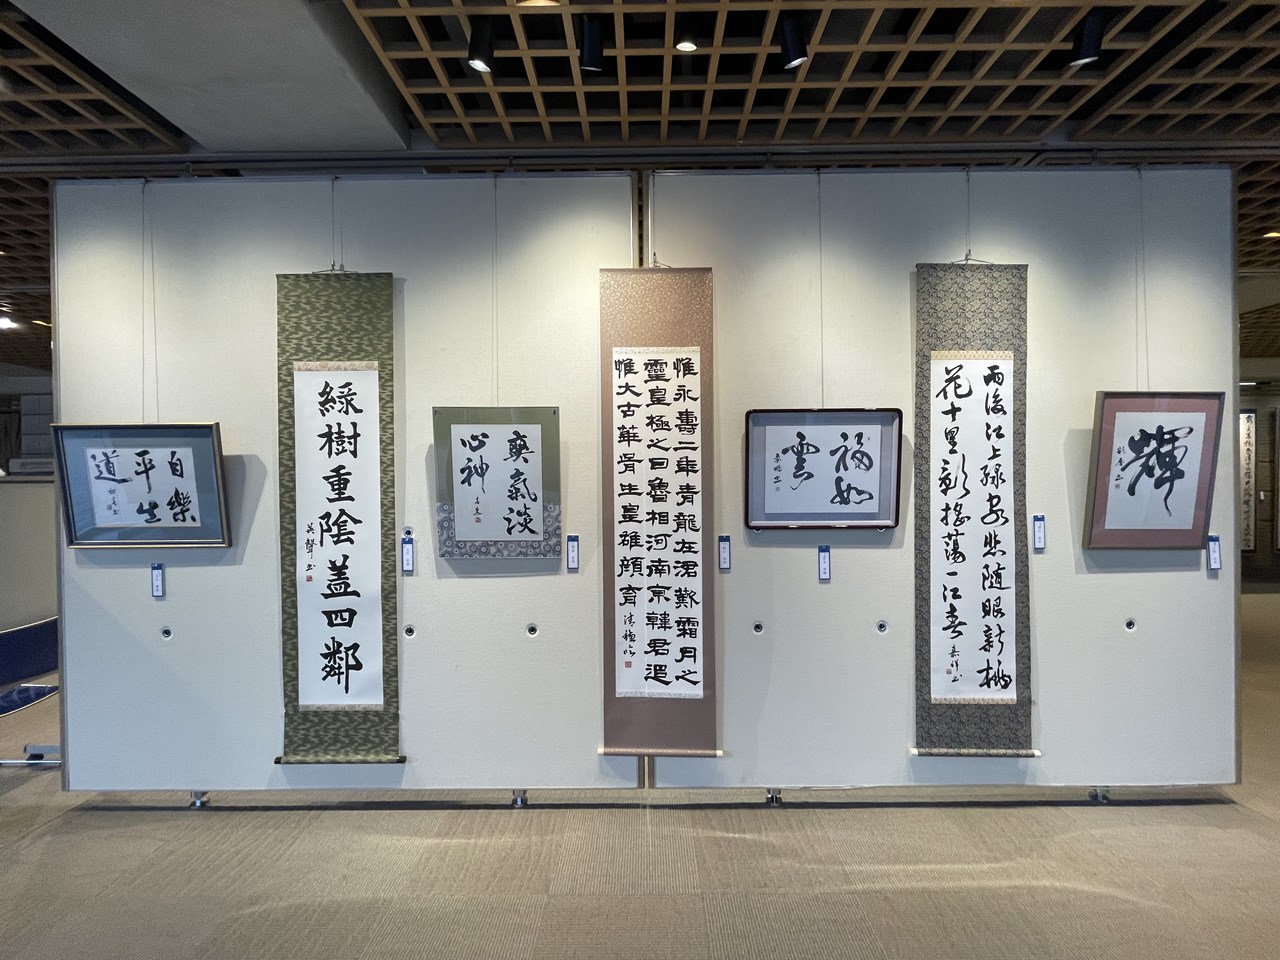 自樂
平生
道
綠樹重陰蓋四鄰
英聲書
爽氣淡
心神
惟永壽二年青龍在涒歎霜月之
靈皇極之日魯相河南京韓君追
惟大古華胥生皇雄顏育
清穂臨
福如
雲
雨後江上綠客悲隨眼新桃
花十里影搖蕩一江春
嘉祥書
輝